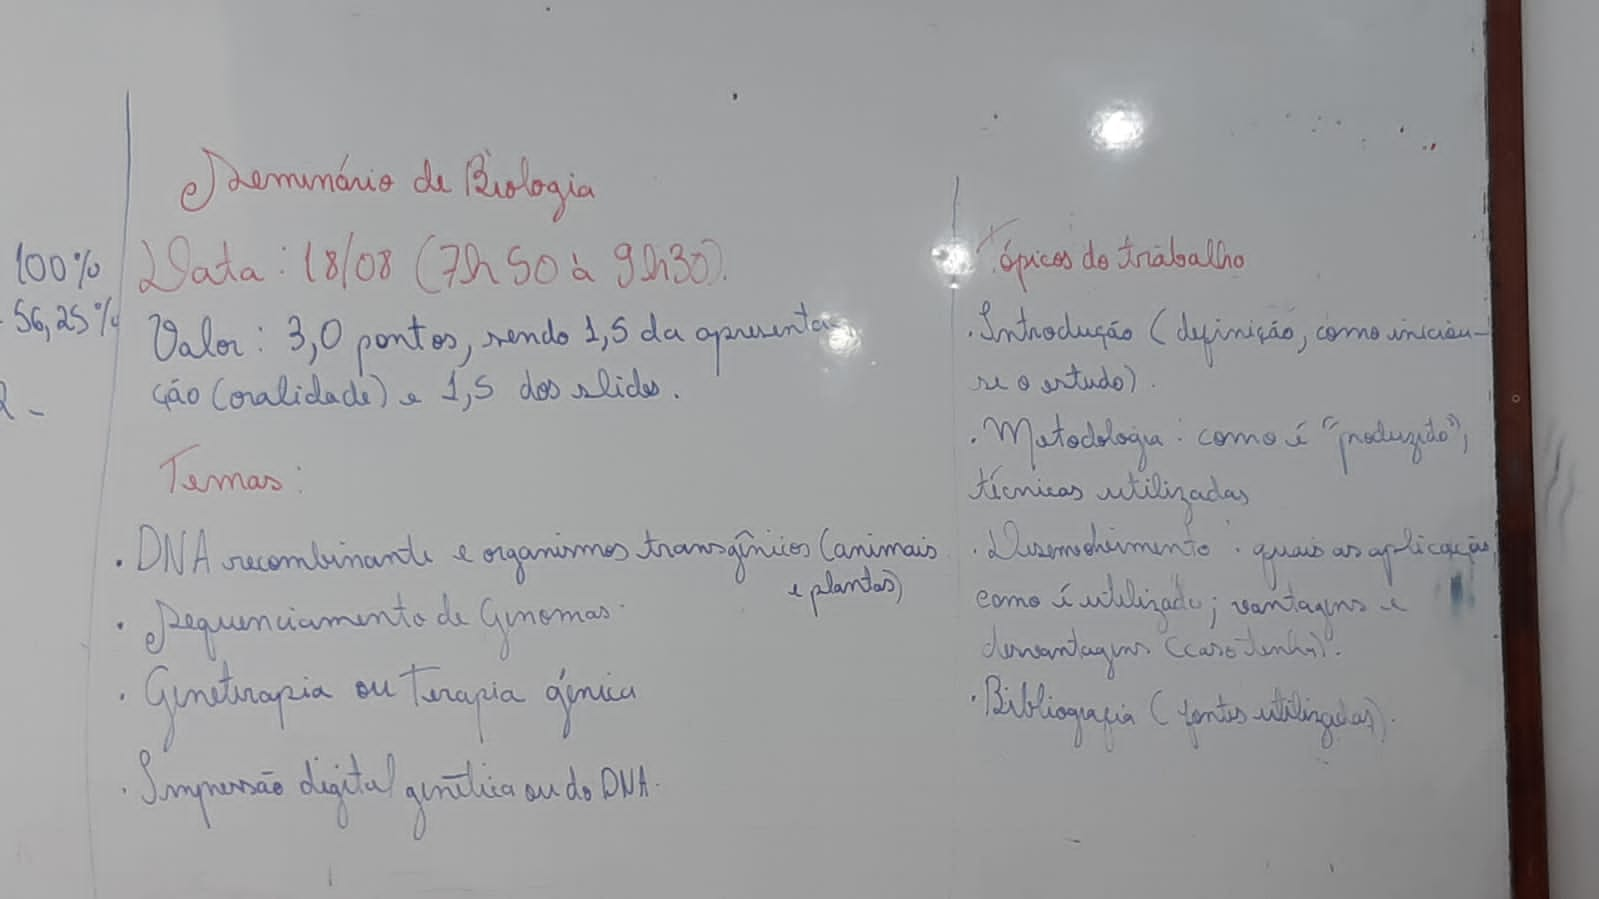 100%
56,25%
Seminário de Biologia
Data: 18/08 (7h50 à 9h30).
Valor: 3,0 pontos, sendo 1,5 da apresenta
ção (oralidade) e 1,5 dos slides.
Temas:
· DNA recombinante e organismos transgênicos (animais
e plantas)
· Sequenciamento de Genomas.
· Geneterapia ou Terapia gênica
· Impressão digital genética ou do DNA.
Tópicos do trabalho
· Introdução (definição, como iniciou-
se o estudo).
· Metodologia: como é "produzido",
técnicas utilizadas
· Desenvolvimento: quais as aplicações,
como é utilizado; vantagens e
desvantagens (caso tenha).
· Bibliografia (fontes utilizadas).